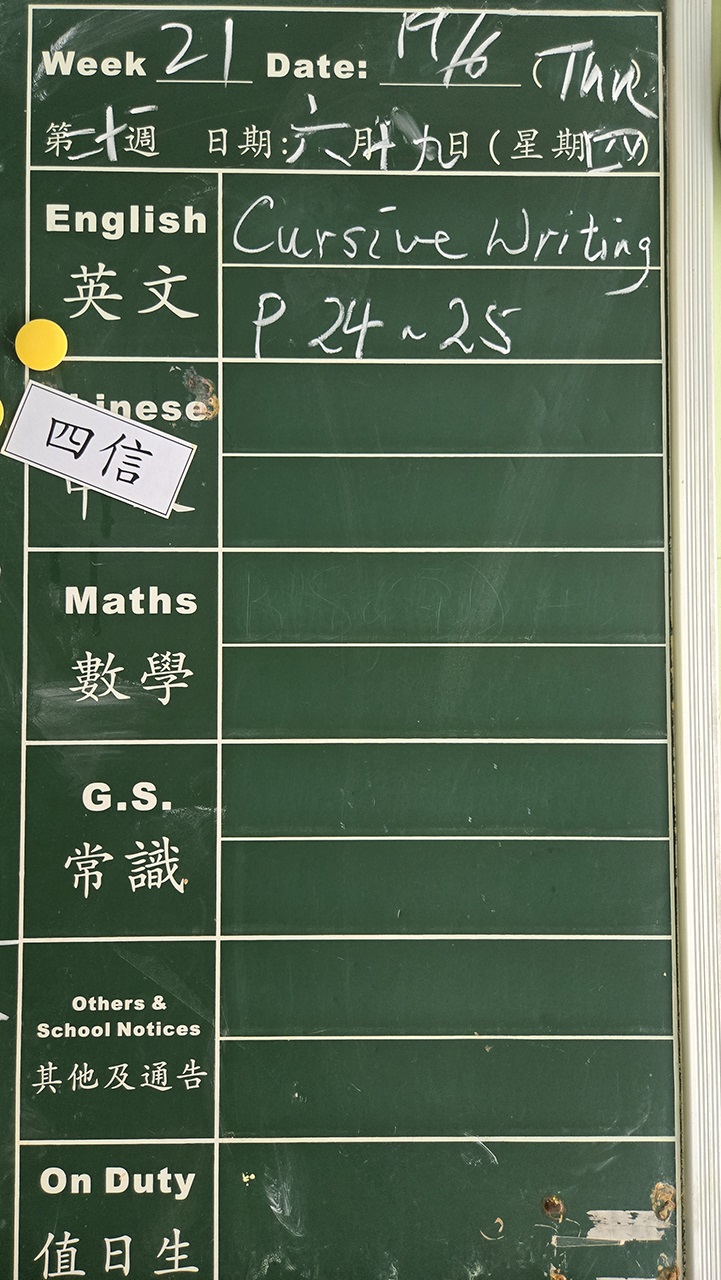 Week 21 Date: 19/6 (Thur)
第二十一週 日期:六月十九日(星期四)
English Cursive Writing
英文 P 24~25
Chinese
四信
Maths
數學
G.S.
常識
Others &
School Notices
其他及通告
On Duty
值日生